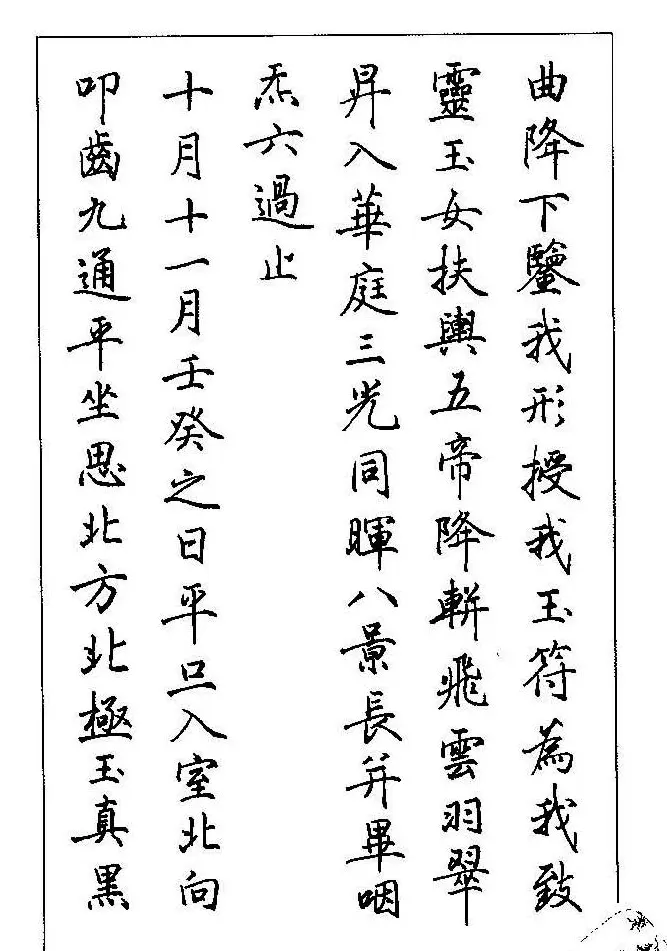 曲降下鑒我形授我玉符為我致
靈玉女扶輿五帝降軿飛雲羽翠
昇入華庭三光同暉八景長并畢咽
炁六過止
十月十一月壬癸之日平旦入室北向
叩齒九通平坐思北方北極玉真黑